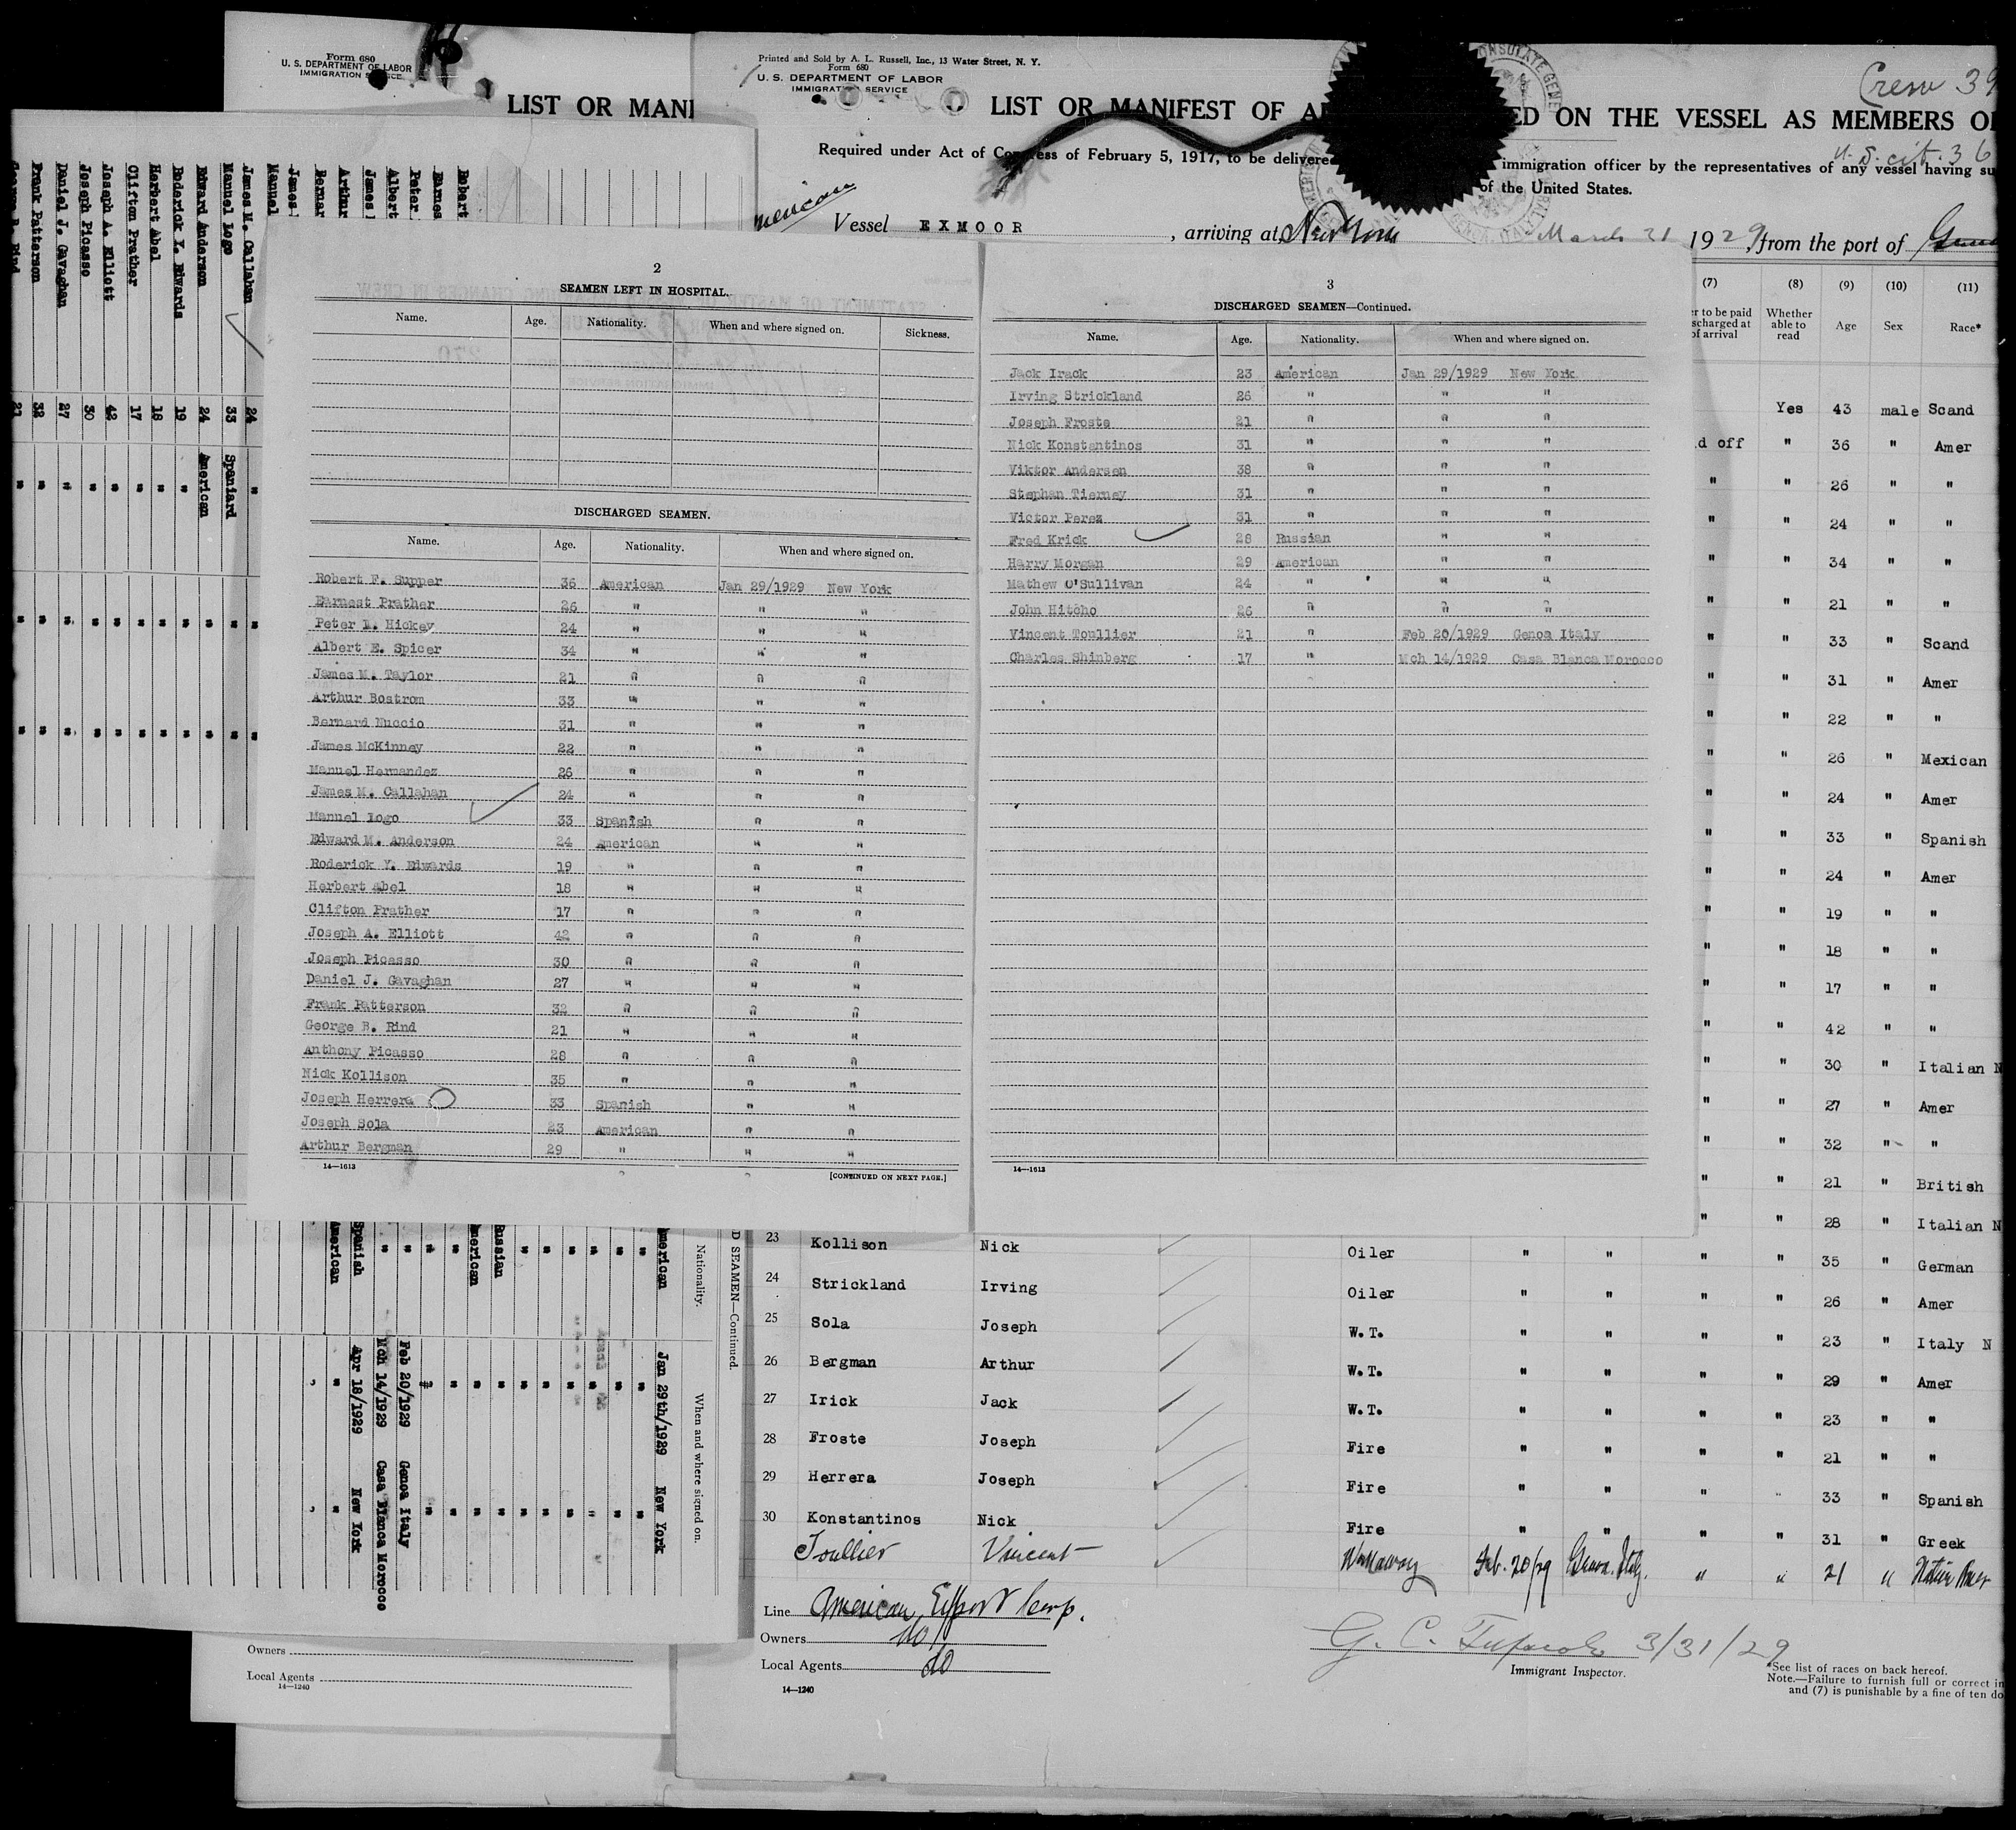 Form 680
U. S. DEPARTMENT OF LABOR
IMMIGRATION SERVICE
LIST OR MANI
Printed and Sold by A. L. Russell, Inc., 13 Water Street, N. Y.
Form 680
U. S. DEPARTMENT OF LABOR
IMMIGRATION SERVICE
Crew 39
LIST OR MANIFEST OF A ED ON THE VESSEL AS MEMBERS O
Required under Act of Congress of February 5, 1917, to be delivere immigration officer by the representatives of any vessel having su
U.S. cit. 36
of the United States.
merican
Vessel EXMOOR , arriving at New York March 31 1929, from the port of
(7) (8) (9) (10) (11)
er to be paid
scharged at
of arrival
Whether
able to
read
Age Sex Race*
Yes 43 male Scand
d off " 36 " Amer
" " 26 " "
" " 24 " "
" " 34 " "
" " 21 " "
" " 33 " Scand
" " 31 " Amer
" " 22 " "
" " 26 " Mexican
" " 24 " Amer
" " 33 " Spanish
" " 24 " Amer
" " 19 " "
" " 18 " "
" " 17 " "
" " 42 " "
" " 30 " Italian N
" " 27 " Amer
" " 32 " "
" " 21 " British
" " 28 " Italian N
23 Kollison Nick Oiler " " " " 35 " German
24 Strickland Irving Oiler " " " " 26 " Amer
25 Sola Joseph W.T. " " " " 23 " Italy N
26 Bergman Arthur W.T. " " " " 29 " Amer
27 Irick Jack W.T. " " " " 23 " "
28 Froste Joseph Fire " " " " 21 " "
29 Herrera Joseph Fire " " " " 33 " Spanish
30 Konstantinos Nick Fire " " " " 31 " Greek
Toullier Vincent Workaway Feb. 20/29 Genoa. Italy. " " 21 "
Line American Export Corp.
Owners do
Local Agents do
14—1240
G. C. 3/31/29
Immigrant Inspector.
*See list of races on back hereof.
Note.—Failure to furnish full or correct in
and (7) is punishable by a fine of ten do
2
SEAMEN LEFT IN HOSPITAL.
Name. Age. Nationality. When and where signed on. Sickness.
DISCHARGED SEAMEN.
Name. Age. Nationality. When and where signed on.
Robert F. Supper 36 American Jan 29/1929 New York
Earnest Prather 26 " " "
Peter L. Hickey 24 " " "
Albert E. Spicer 34 " " "
James M. Taylor 21 " " "
Arthur Bostrom 33 " " "
Bernard Nuccio 31 " " "
James McKinney 22 " " "
Manuel Hernandez 26 " " "
James M. Callahan 24 " " "
Manuel Logo 33 Spanish " "
Edward M. Anderson 24 American " "
Roderick Y. Edwards 19 " " "
Herbert Abel 18 " " "
Clifton Prather 17 " " "
Joseph A. Elliott 42 " " "
Joseph Picasso 30 " " "
Daniel J. Gavaghan 27 " " "
Frank Patterson 32 " " "
George B. Rind 21 " " "
Anthony Picasso 28 " " "
Nick Kollison 35 " " "
Joseph Herrera 33 Spanish " "
Joseph Sola 23 American " "
Arthur Bergman 29 " " "
14—1613
[CONTINUED ON NEXT PAGE.]
3
DISCHARGED SEAMEN—Continued.
Name. Age. Nationality. When and where signed on.
Jack Irack 23 American Jan 29/1929 New York
Irving Strickland 26 " " "
Joseph Froste 21 " " "
Nick Konstantinos 31 " " "
Viktor Andersen 38 " " "
Stephan Tierney 31 " " "
Victor Perez 31 " " "
Fred Krick 28 Russian " "
Harry Morgan 29 American " "
Mathew O'Sullivan 24 " " "
John Hitcho 26 " " "
Vincent Toullier 21 " Feb 20/1929 Genoa Italy
Charles Shinberg 17 " Mch 14/1929 Casa Blanca Morocco
14—1613
Robert
Earnes
Peter
Albert
James
Arthur
Bernar
James
Manuel
James M. Callahan 24 " " "
Manuel Logo 33 Spaniard " "
Edward Anderson 24 American " "
Roderick L. Edwards 19 " " "
Herbert Abel 18 " " "
Clifton Prather 17 " " "
Joseph A. Elliott 42 " " "
Joseph Picasso 30 " " "
Daniel J. Gavaghan 27 " " "
Frank Patterson 32 " " "
George B. Rind 21 " " "
D SEAMEN—Continued.
Nationality. When and where signed on.
American Jan 29th/1929 New York
" " "
" " "
" " "
" " "
" " "
" " "
Russian " "
merican " "
" " "
" " "
" Feb 20/1929 Genoa Italy
" Mch 14/1929 Casa Blanca Morocco
Spanish Apr 18/1929 New York
American " "
Owners
Local Agents
14—1240